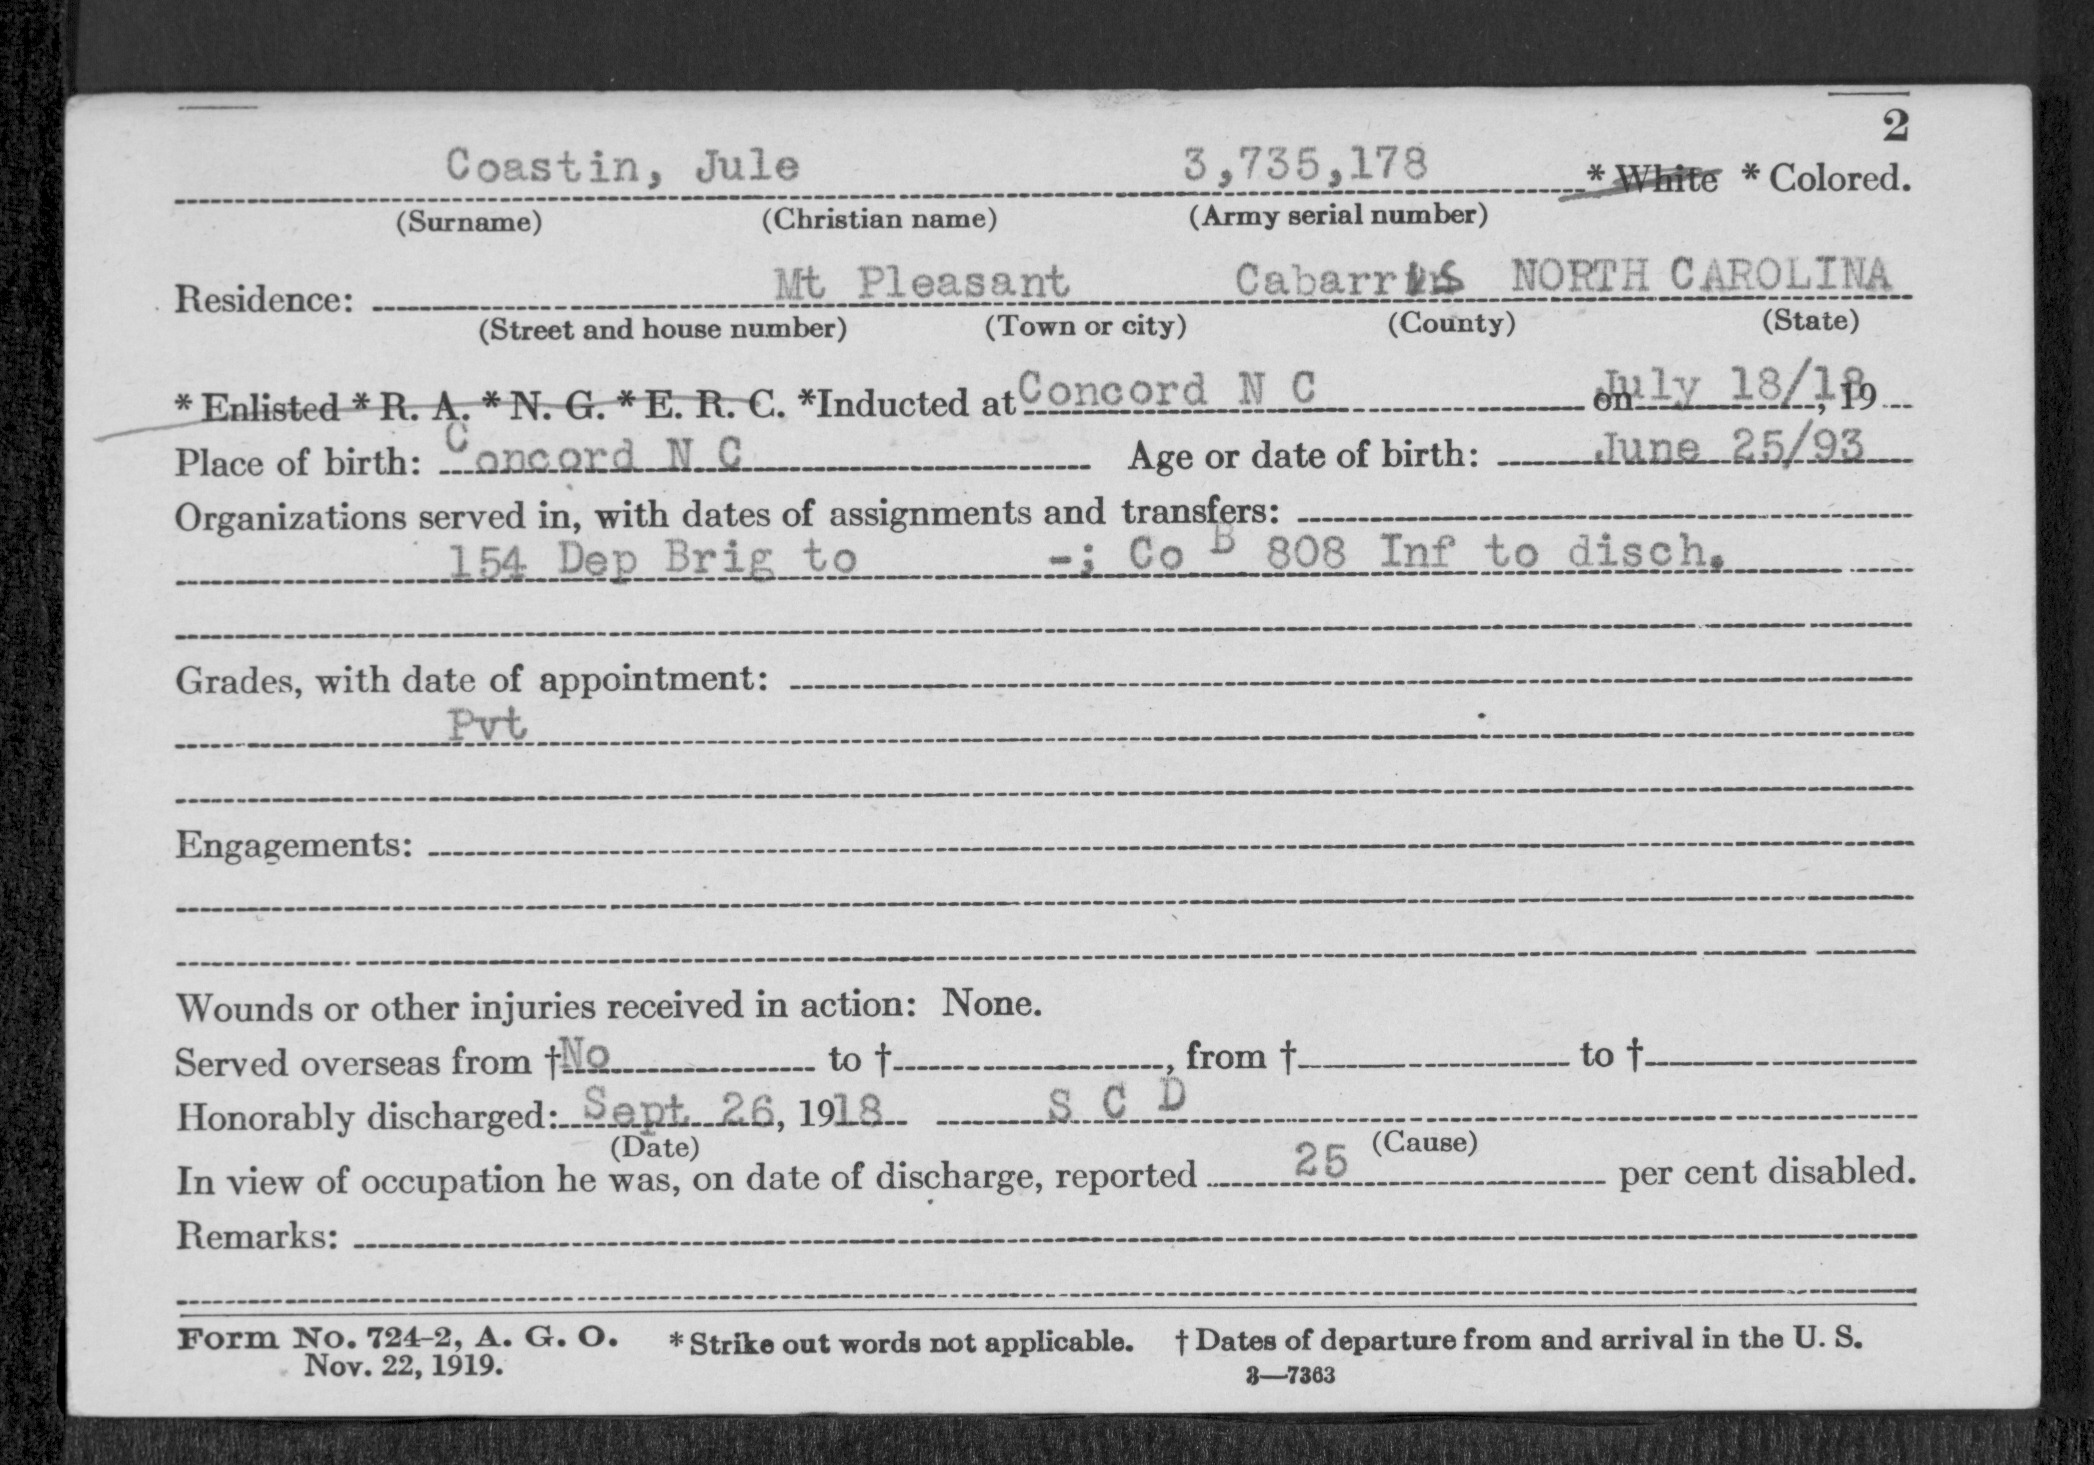 2
Coastin, Jule 3,735,178 * White * Colored.
(Surname) (Christian name) (Army serial number)
Residence: Mt Pleasant Cabarrus NORTH CAROLINA
(Street and house number) (Town or city) (County) (State)
* Enlisted * R. A. * N. G. * E. R. C. *Inducted at Concord N C on July 18/18, 19
Place of birth: Concord N C Age or date of birth: June 25/93
Organizations served in, with dates of assignments and transfers:
154 Dep Brig to -; Co B 808 Inf to disch.
Grades, with date of appointment:
Pvt
Engagements:
Wounds or other injuries received in action: None.
Served overseas from † No to †, from † to †
Honorably discharged: Sept 26, 1918 S C D
(Date) (Cause)
In view of occupation he was, on date of discharge, reported 25 per cent disabled.
Remarks:
Form No. 724-2, A. G. O. * Strike out words not applicable. † Dates of departure from and arrival in the U. S.
Nov. 22, 1919. 3—7363